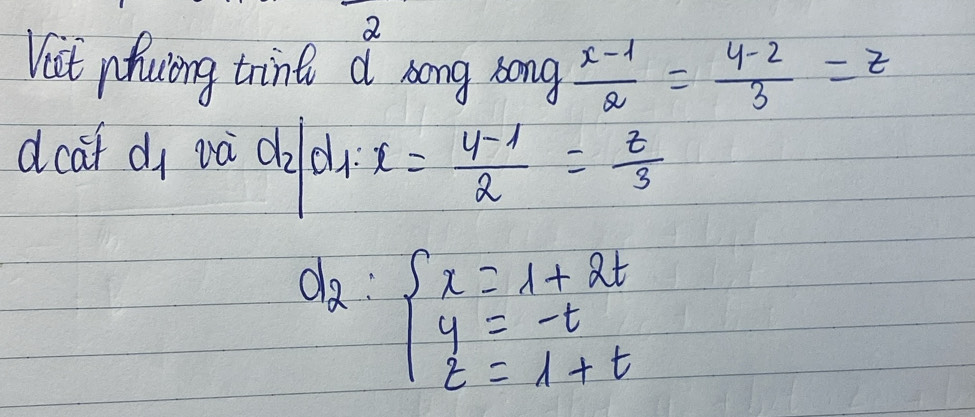 2
Viết phương trình d song song x-1/2 = y-2/3 = z
d cắt d1 và d2 | d1: x = y-1/2 = z/3
d2: { x = 1 + 2t
y = -t
z = 1 + t